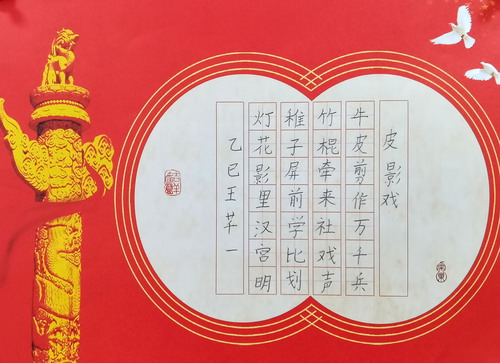 皮影戏
牛皮剪作万千兵
竹棍牵来社戏声
稚子屏前学比划
灯花影里汉宫明
乙巳王芊一